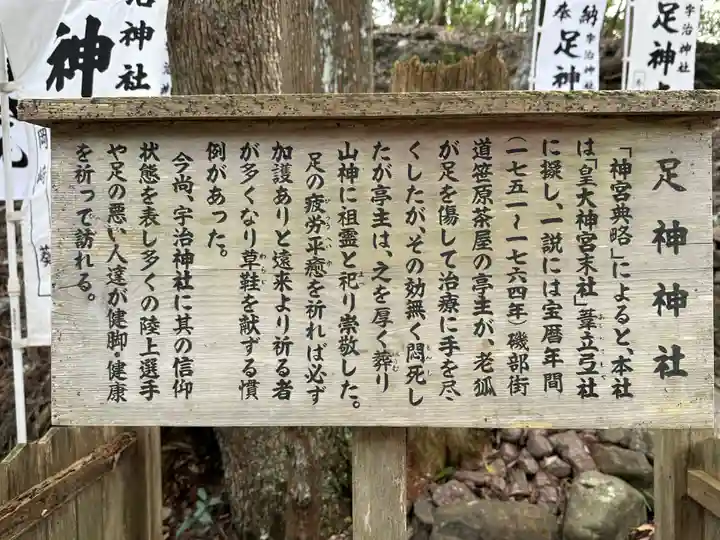 足神神社
「神宮典略」によると、本社
は「皇大神宮末社」葦立弖社
に擬し、一説には宝暦年間
(一七五一〜一七六四年)磯部街
道笹原茶屋の亭主が、老狐
が足を傷して治療に手を尽
くしたが、その効無く悶死し
たが亭主は、之を厚く葬り
山神に祖霊と祀り崇敬した。
足の疲労平癒を祈れば必ず
加護ありと遠来より祈る者
が多くなり草鞋を献ずる慣
例があった。
今尚、宇治神社に其の信仰
状態を表し多くの陸上選手
や足の悪い人達が健脚・健康
を祈って訪れる。
宇治神社
足神
奉納
宇治神社
足神
治神社
神